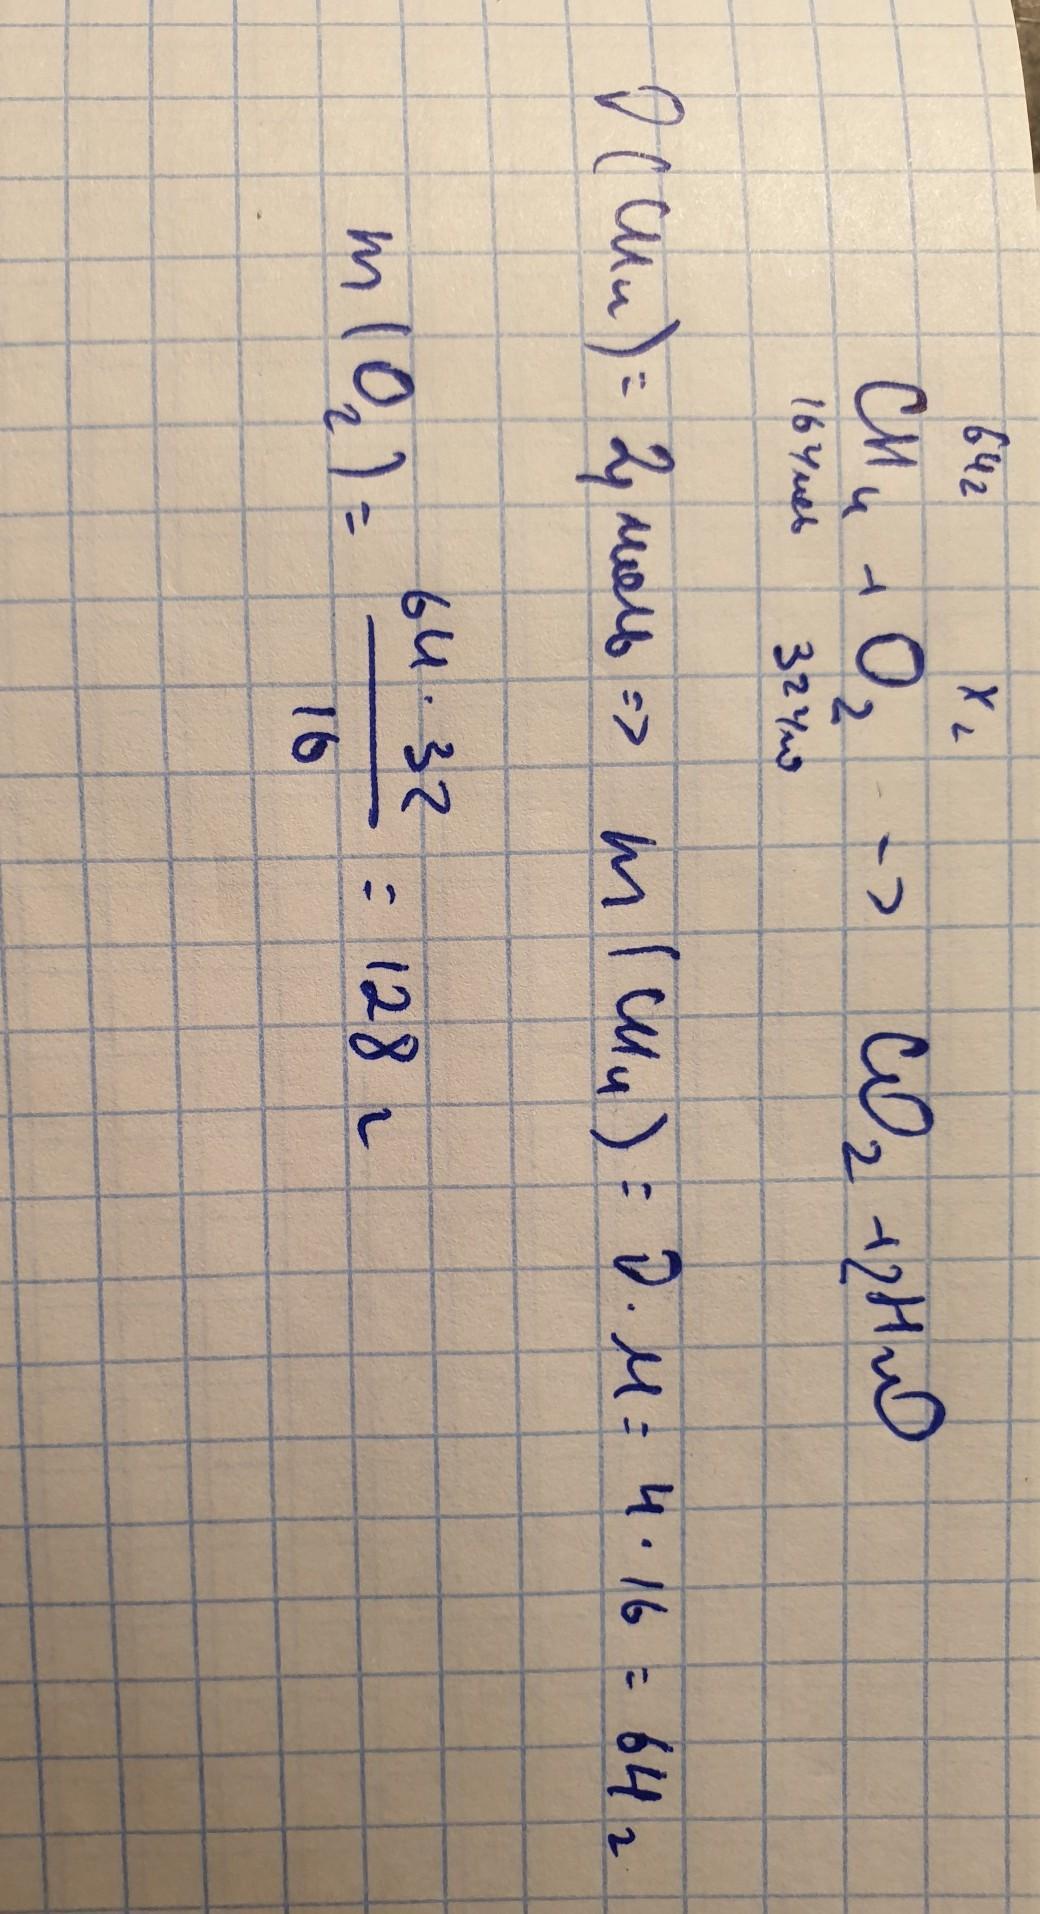 64г x г
CH4 + O2 -> CO2 + 2H2O
16 г/моль 32 г/мо
ν(CH4) = 4 моль => m(CH4) = ν · M = 4 · 16 = 64 г
m(O2) = 64 · 32 / 16 = 128 г